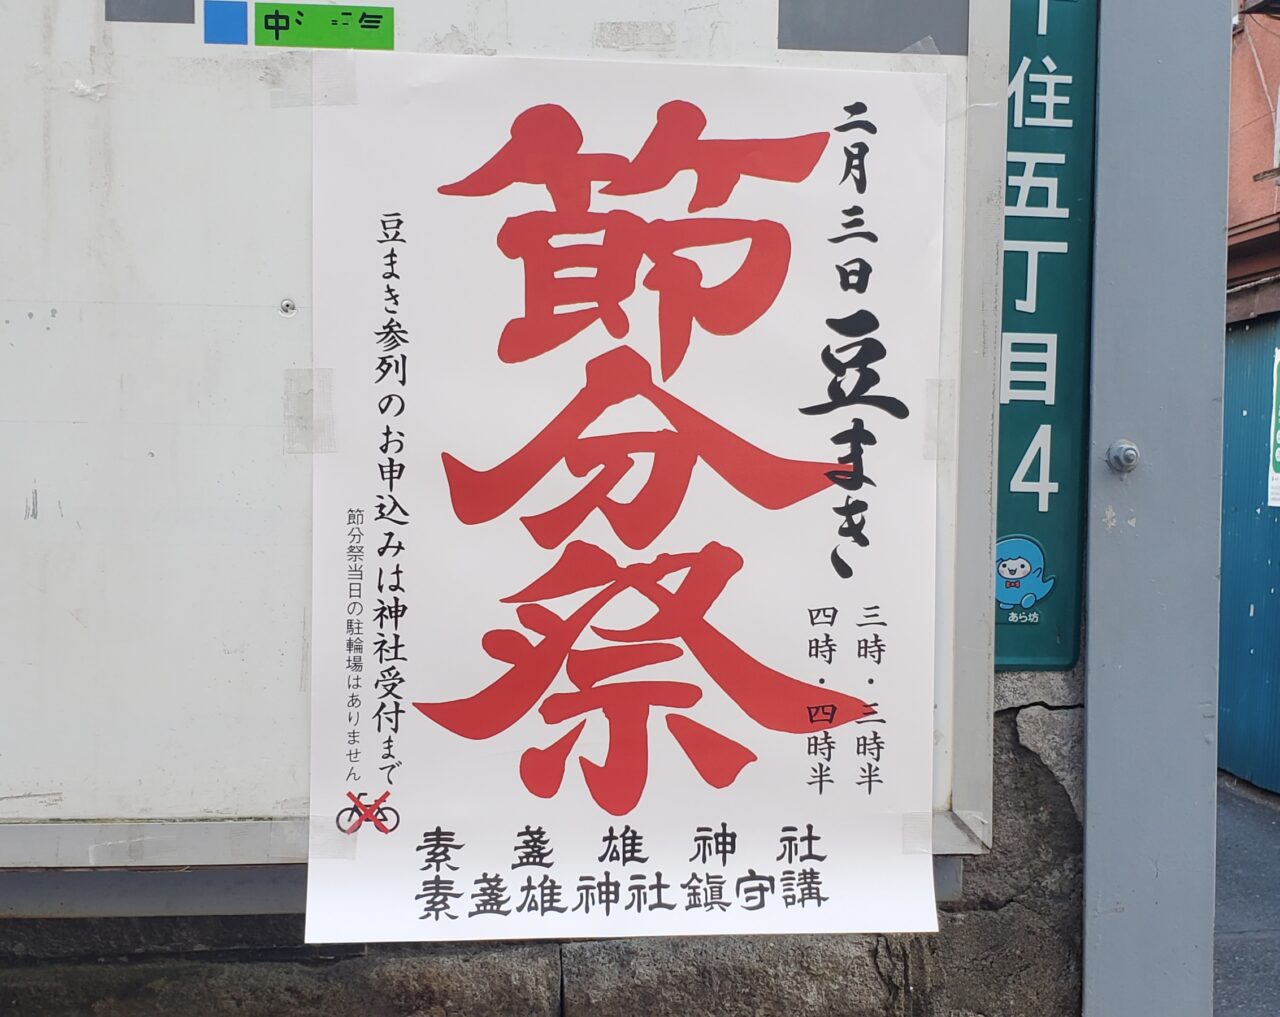 二月三日 豆まき
三時・三時半
四時・四時半
節分祭
豆まき参列のお申込みは神社受付まで
節分祭当日の駐輪場はありません
素盞雄神社
素盞雄神社鎮守講
住五丁目4
あら坊
中